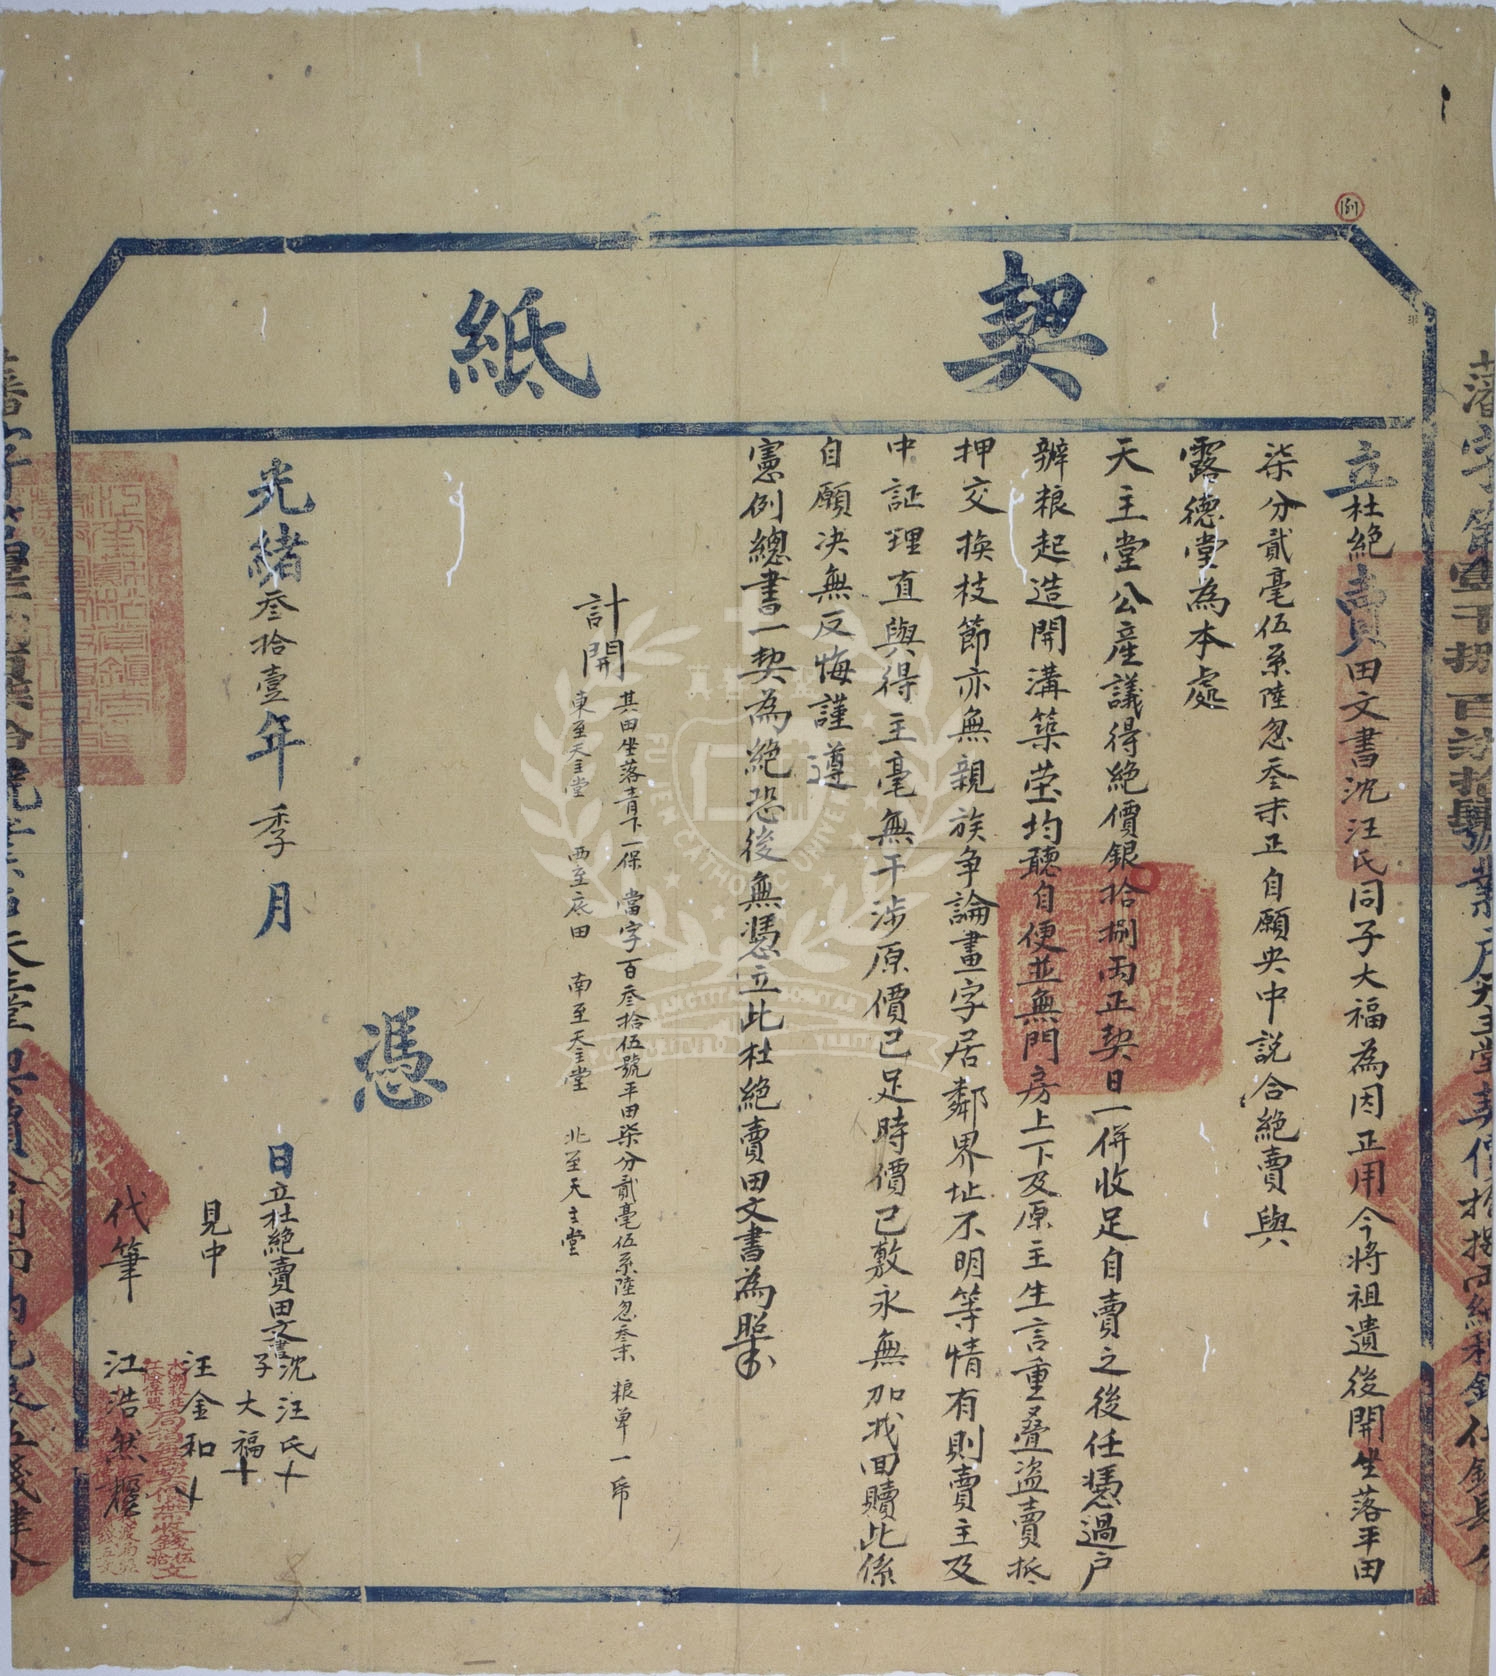 契紙
立杜絕賣田文書沈汪氏同子大福為因正用今將祖遺後開坐落平田
柒分貳毫伍系陸忽叁末正自願央中説合絕賣與
露德堂為本處
天主堂公產議得絕價銀拾捌兩正契日一併收足自賣之後任憑過戶
辦粮起造開溝築塋均聽自便並無門房上下及原主生言重叠盜賣抵
押交換枝節亦無親族争論畫字居鄰界址不明等情有則賣主及
中証理直與得主毫無干涉原價已足時價已敷永無加找回贖此係
自願决無反悔謹遵
憲例總書一契為絕恐後無憑立此杜絕賣田文書為照
計開
其田坐落青下一保 當字百叁拾伍號平田柒分貳毫伍系陸忽叁末 粮单一帋
東至天主堂 西至底田 南至天主堂 北至天主堂
憑
光緒叁拾壹年季月 日立杜絕賣田文書沈汪氏十
子大福十
見中 汪金和十
代筆 江浩然
藩字第壹千捌百
業戶天主堂契價拾捌兩
FU JEN CATHOLIC UNIVERSITY